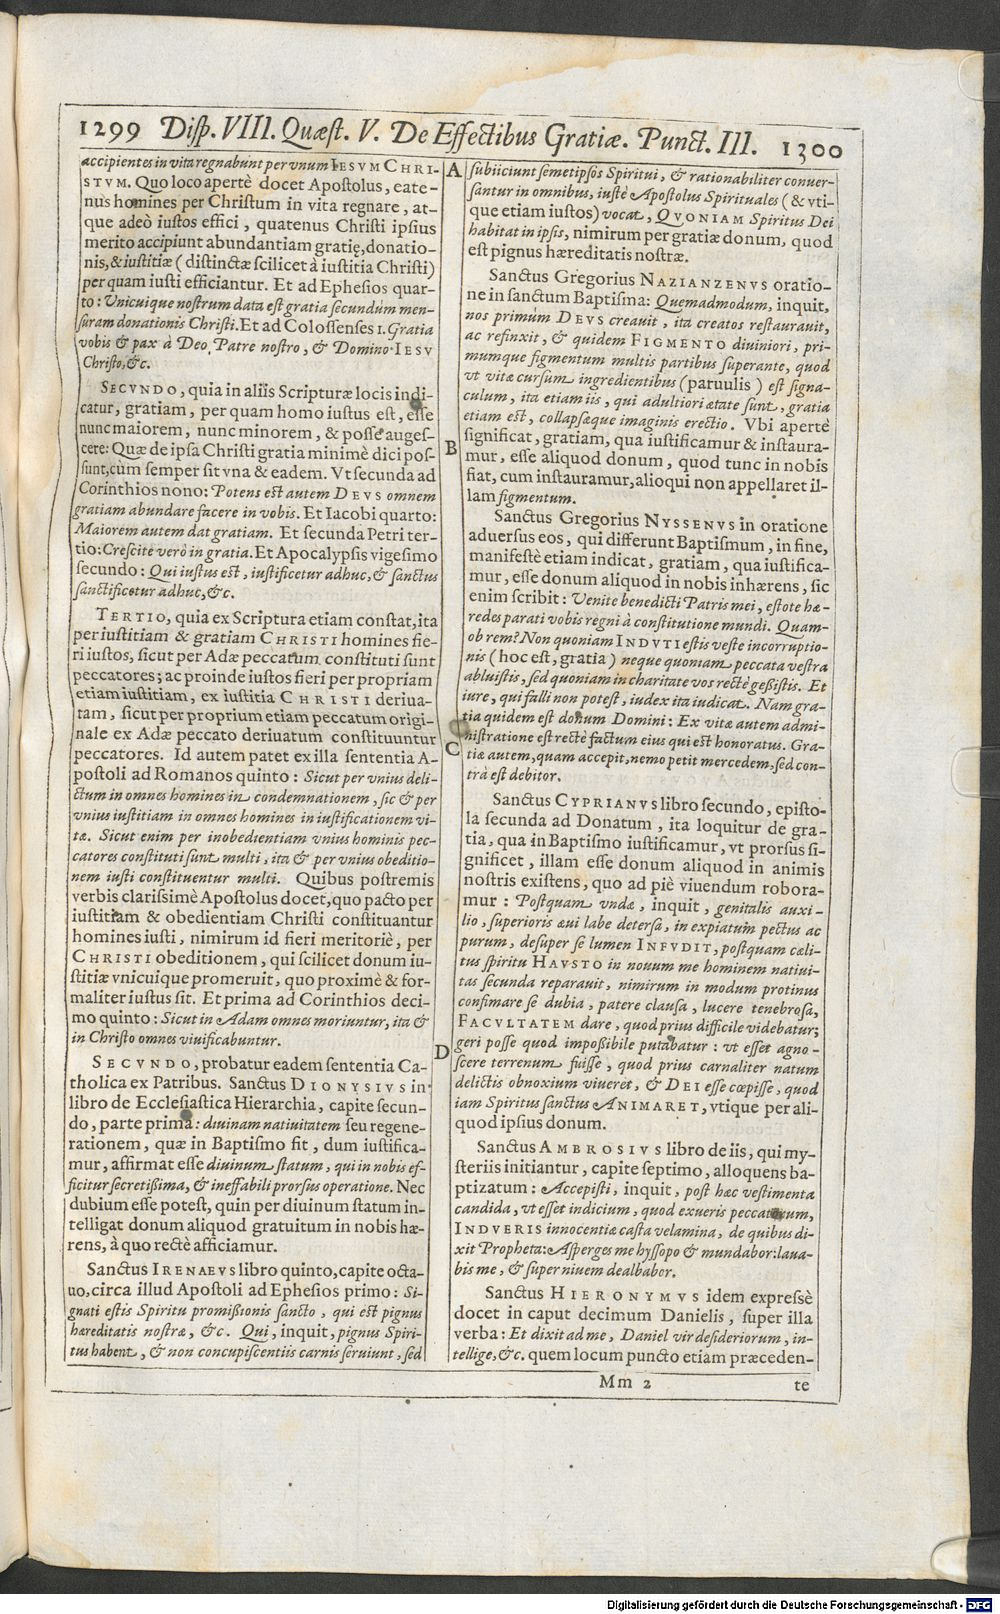 1299 Disp. VIII. Quæst. V. De Effectibus Gratiæ. Punct. III. 1300
accipientes in vita regnabunt per vnum IESVM CHRI-
STVM. Quo loco apertè docet Apostolus, eate-
nus homines per Christum in vita regnare, at-
que adeò iustos effici, quatenus Christi ipsius
merito accipiunt abundantiam gratię, donatio-
nis, & iustitiæ (distinctæ scilicet à iustitia Christi)
per quam iusti efficiantur. Et ad Ephesios quar-
to: Vnicuique nostrum data est gratia secundùm men-
suram donationis Christi. Et ad Colossenses 1. Gratia
vobis & pax à Deo Patre nostro, & Domino IESV
Christo, &c.
SECVNDO, quia in aliis Scripturæ locis indi-
catur, gratiam, per quam homo iustus est, esse
nunc maiorem, nunc minorem, & posse auges-
cere: Quæ de ipsa Christi gratia minimè dici pos-
sunt, cùm semper sit vna & eadem. Vt secunda ad
Corinthios nono: Potens est autem DEVS omnem
gratiam abundare facere in vobis. Et Iacobi quarto:
Maiorem autem dat gratiam. Et secunda Petri ter-
tio: Crescite verò in gratia. Et Apocalypsis vigesimo
secundo: Qui iustus est, iustificetur adhuc, & sanctus
sanctificetur adhuc, &c.
TERTIO, quia ex Scriptura etiam constat, ita
per iustitiam & gratiam CHRISTI homines fie-
ri iustos, sicut per Adæ peccatum constituti sunt
peccatores; ac proinde iustos fieri per propriam
etiam iustitiam, ex iustitia CHRISTI deriua-
tam, sicut per proprium etiam peccatum origi-
nale ex Adæ peccato deriuatum constituuntur
peccatores. Id autem patet ex illa sententia A-
postoli ad Romanos quinto: Sicut per vnius deli-
ctum in omnes homines in condemnationem, sic & per
vnius iustitiam in omnes homines in iustificationem vi-
tæ. Sicut enim per inobedientiam vnius hominis pec-
catores constituti sunt multi, ita & per vnius obeditio-
nem iusti constituentur multi. Quibus postremis
verbis clarissimè Apostolus docet, quo pacto per
iustitiam & obedientiam Christi constituantur
homines iusti, nimirum id fieri meritoriè, per
CHRISTI obeditionem, qui scilicet donum iu-
stitiæ vnicuique promeruit, quo proximè & for-
maliter iustus sit. Et prima ad Corinthios deci-
mo quinto: Sicut in Adam omnes moriuntur, ita &
in Christo omnes viuificabuntur.
SECVNDO, probatur eadem sententia Ca-
tholica ex Patribus. Sanctus DIONYSIVS in
libro de Ecclesiastica Hierarchia, capite secun-
do, parte prima: diuinam natiuitatem seu regene-
rationem, quæ in Baptismo fit, dum iustifica-
mur, affirmat esse diuinum statum, qui in nobis ef-
ficitur secretißima, & ineffabili prorsus operatione. Nec
dubium esse potest, quin per diuinum statum in-
telligat donum aliquod gratuitum in nobis hæ-
rens, à quo rectè afficiamur.
Sanctus IRENAEVS libro quinto, capite octa-
uo, circa illud Apostoli ad Ephesios primo: Si-
gnati estis Spiritu promißionis sancto, qui est pignus
hæreditatis nostræ, &c. Qui, inquit, pignus Spiri-
tus habent, & non concupiscentiis carnis seruiunt, sed
A
B
C
D
subiiciunt semetipsos Spiritui, & rationabiliter conuer-
santur in omnibus, iustè Apostolus Spirituales (& vti-
que etiam iustos) vocat, QVONIAM Spiritus Dei
habitat in ipsis, nimirum per gratiæ donum, quod
est pignus hæreditatis nostræ.
Sanctus Gregorius NAZIANZENVS oratio-
ne in sanctum Baptisma: Quemadmodum, inquit,
nos primùm DEVS creauit, ita creatos restaurauit,
ac refinxit, & quidem FIGMENTO diuiniori, pri-
mumque figmentum multis partibus superante, quod
vt vitæ cursum ingredientibus (paruulis) est signa-
culum, ita etiam iis, qui adultiori ætate sunt, gratia
etiam est, collapsæque imaginis erectio. Vbi apertè
significat, gratiam, qua iustificamur & instaura-
mur, esse aliquod donum, quod tunc in nobis
fiat, cum instauramur, alioqui non appellaret il-
lam figmentum.
Sanctus Gregorius NYSSENVS in oratione
aduersus eos, qui differunt Baptismum, in fine,
manifestè etiam indicat, gratiam, qua iustifica-
mur, esse donum aliquod in nobis inhærens, sic
enim scribit: Venite benedicti Patris mei, estote hæ-
redes parati vobis regni à constitutione mundi. Quam-
ob rem? Non quoniam INDVTI estis veste incorruptio-
nis (hoc est, gratia) neque quoniam peccata vestra
abluistis, sed quoniam in charitate vos rectè geßistis. Et
iure, qui falli non potest, iudex ita iudicat. Nam gra-
tia quidem est donum Domini: Ex vitæ autem admi-
nistratione est rectè factum eius qui est honoratus. Gra-
tiæ autem, quam accepit, nemo petit mercedem, sed con-
trà est debitor.
Sanctus CYPRIANVS libro secundo, episto-
la secunda ad Donatum, ita loquitur de gra-
tia, qua in Baptismo iustificamur, vt prorsus si-
gnificet, illam esse donum aliquod in animis
nostris existens, quo ad piè viuendum robora-
mur: Postquam vndæ, inquit, genitalis auxi-
lio, superioris æui labe detersa, in expiatum pectus ac
purum, desuper se lumen INFVDIT, postquam cæli-
tus spiritu HAVSTO in nouum me hominem natiui-
tas secunda reparauit, nimirum in modum protinus
confimare se dubia, patere clausa, lucere tenebrosa,
FACVLTATEM dare, quod prius difficile videbatur;
geri posse quod impoßibile putabatur: vt esset agno-
scere terrenum fuisse, quod prius carnaliter natum
delictis obnoxium viueret, & DEI esse cœpisse, quod
iam Spiritus sanctus ANIMARET, vtique per ali-
quod ipsius donum.
Sanctus AMBROSIVS libro de iis, qui my-
steriis initiantur, capite septimo, alloquens ba-
ptizatum: Accepisti, inquit, post hæc vestimenta
candida, vt esset indicium, quod exueris peccatorum,
INDVERIS innocentiæ casta velamina, de quibus di-
xit Propheta: Asperges me hyssopo & mundabor: laua-
bis me, & super niuem dealbabor.
Sanctus HIERONYMVS idem expressè
docet in caput decimum Danielis, super illa
verba: Et dixit ad me, Daniel vir desideriorum, in-
tellige, &c. quem locum puncto etiam præceden-
Mm 2 te
Digitalisierung gefördert durch die Deutsche Forschungsgemeinschaft - DFG